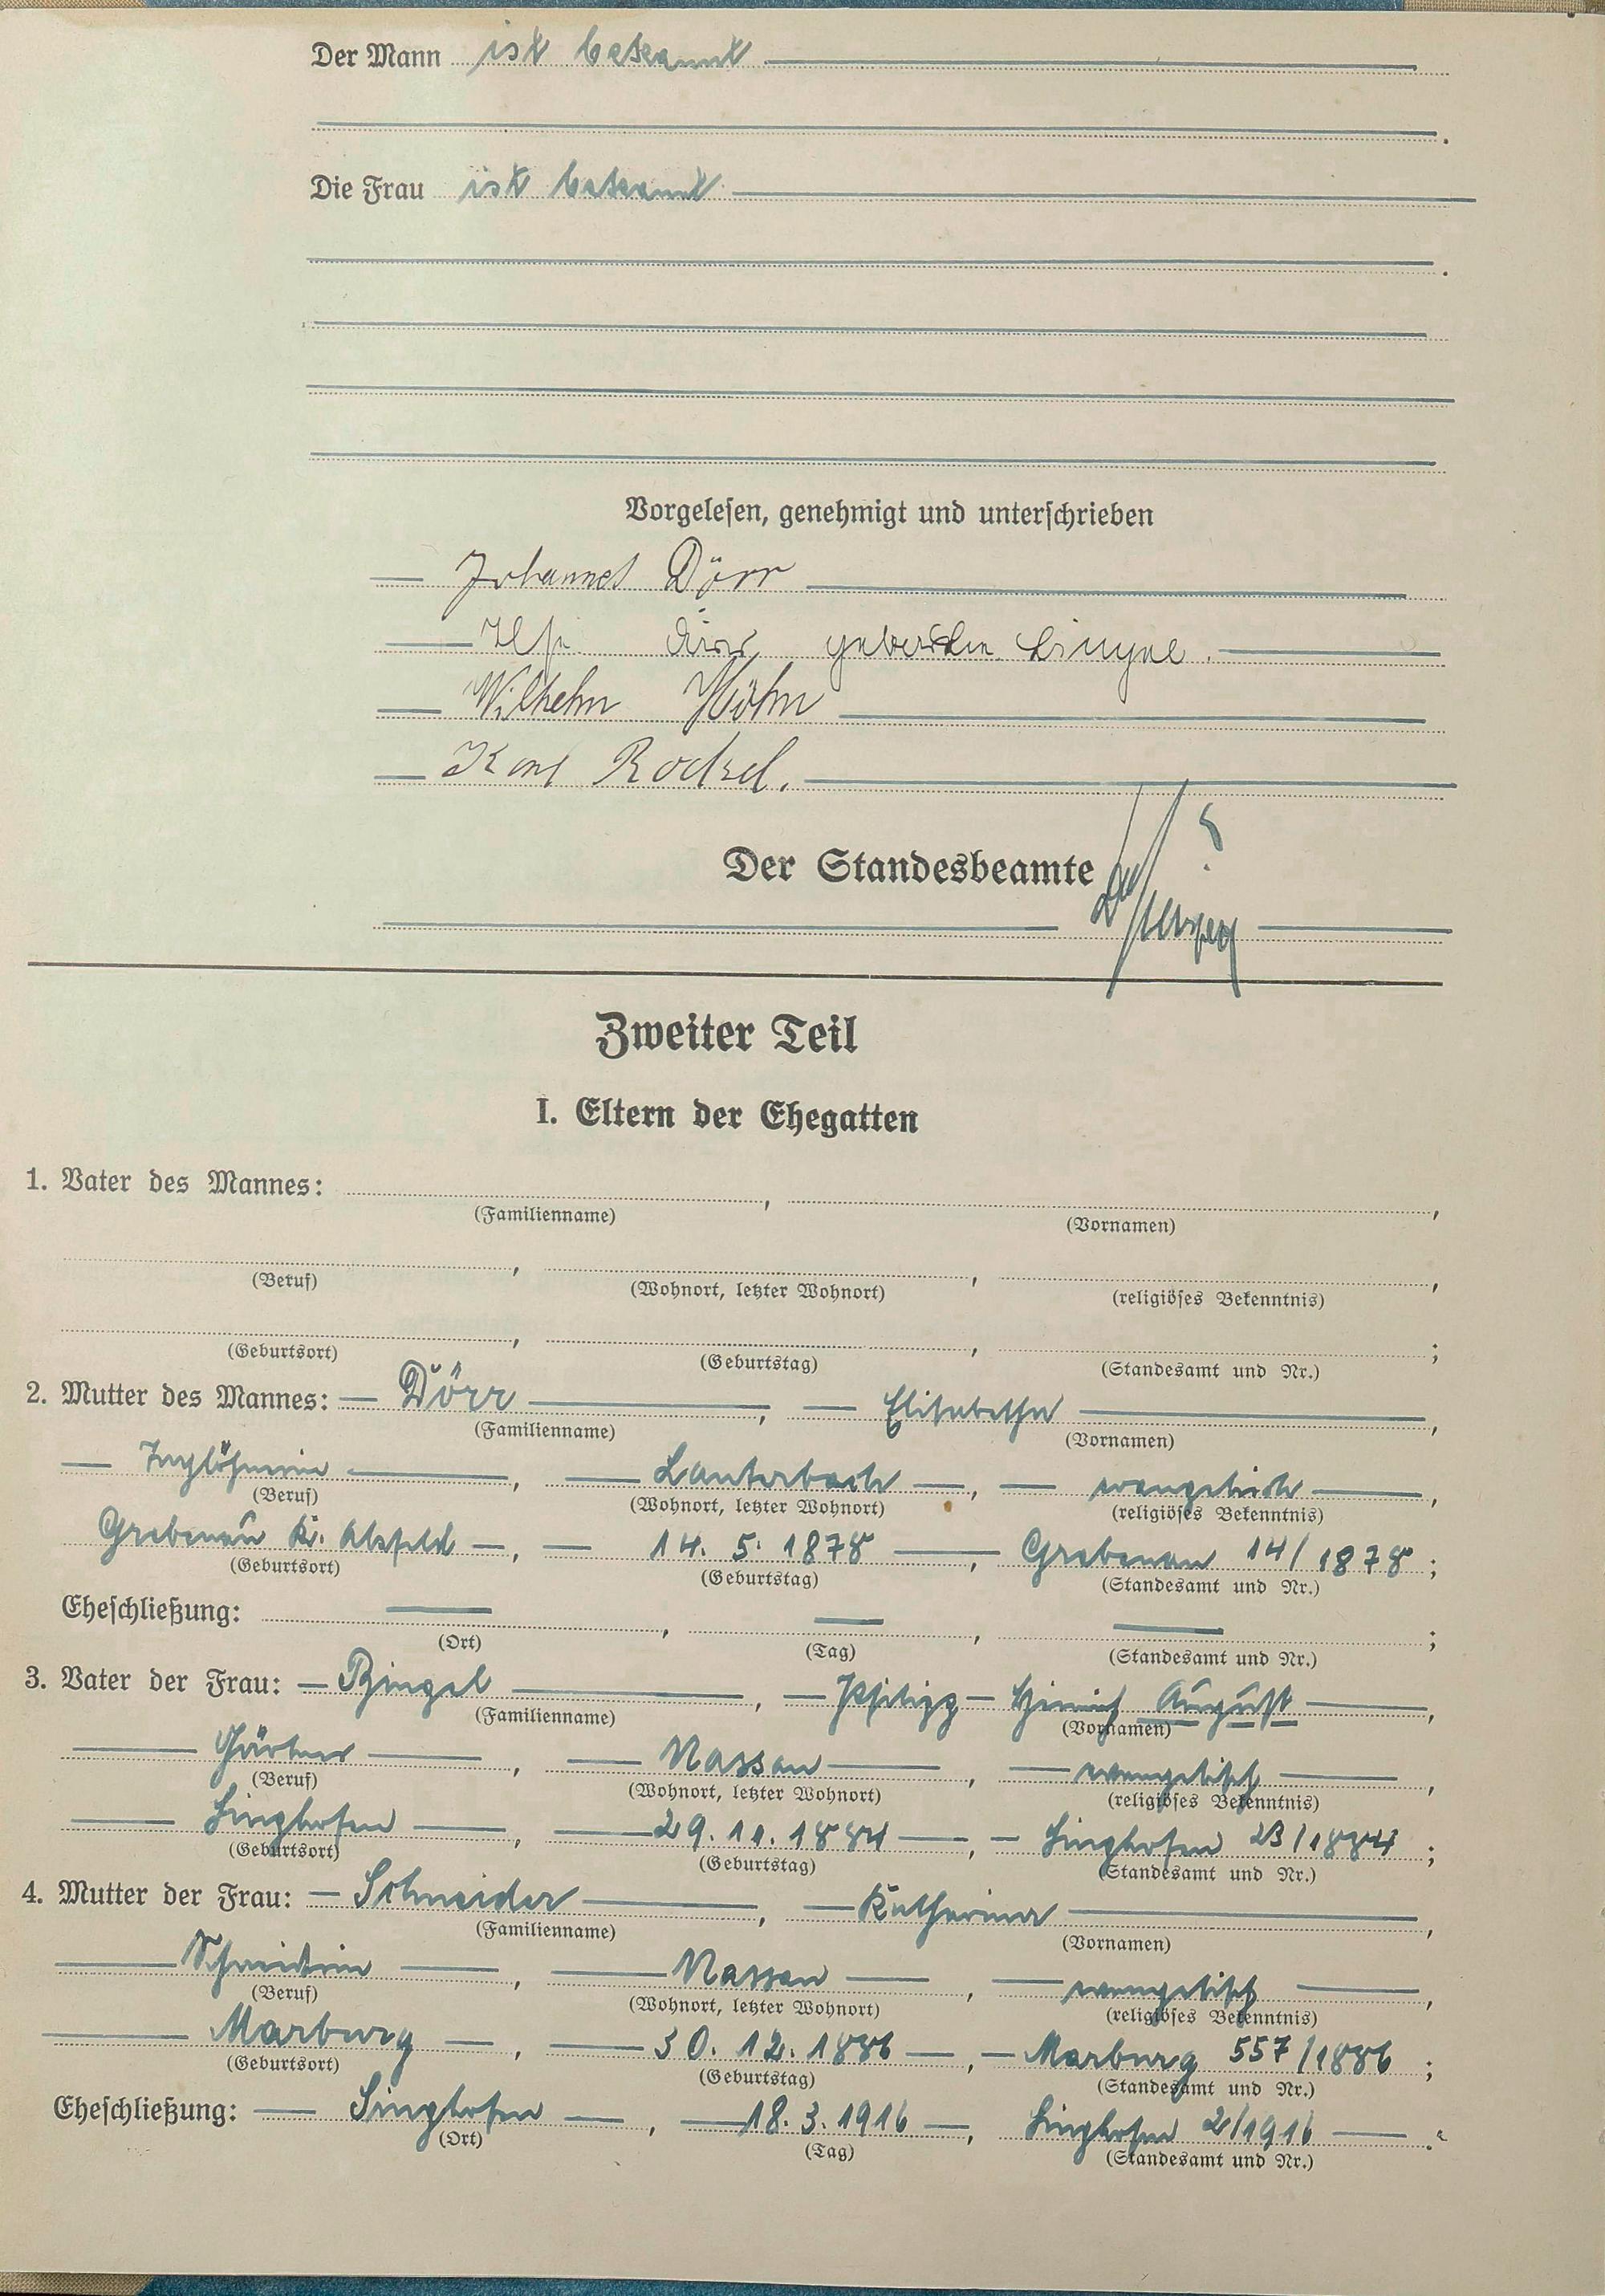 Der Mann ist bekannt
Die Frau ist bekannt
Vorgelesen, genehmigt und unterschrieben
Johannes Dörr
Ilse Dörr geborene Bingel.
Wilhelm Höhn
Karl
Der Standesbeamte
Zweiter Teil
I. Eltern der Ehegatten
1. Vater des Mannes: , ,
(Familienname) (Vornamen)
, , ,
(Beruf) (Wohnort, letzter Wohnort) (religiöses Bekenntnis)
, , ;
(Geburtsort) (Geburtstag) (Standesamt und Nr.)
2. Mutter des Mannes: Dörr, Elisabetha,
(Familienname) (Vornamen)
Taglöhnerin, Lauterbach, evangelisch,
(Beruf) (Wohnort, letzter Wohnort) (religiöses Bekenntnis)
Grebenau Kr. Alsfeld, 14. 5. 1878, Grebenau 14/1878;
(Geburtsort) (Geburtstag) (Standesamt und Nr.)
Eheschließung: —, —, —;
(Ort) (Tag) (Standesamt und Nr.)
3. Vater der Frau: Bingel, Philipp Heinrich August,
(Familienname) (Vornamen)
Gärtner, Nassau, evangelisch,
(Beruf) (Wohnort, letzter Wohnort) (religiöses Bekenntnis)
Singhofen, 29. 11. 1884, Singhofen 23/1884;
(Geburtsort) (Geburtstag) (Standesamt und Nr.)
4. Mutter der Frau: Schneider, Katharina,
(Familienname) (Vornamen)
Schneiderin, Nassau, evangelisch,
(Beruf) (Wohnort, letzter Wohnort) (religiöses Bekenntnis)
Marburg, 30. 12. 1886, Marburg 557/1886;
(Geburtsort) (Geburtstag) (Standesamt und Nr.)
Eheschließung: Singhofen, 18. 3. 1916, Singhofen 2/1916.
(Ort) (Tag) (Standesamt und Nr.)